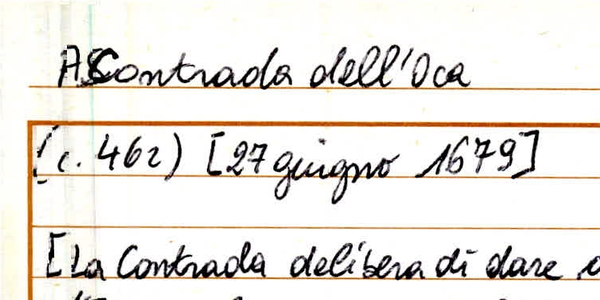 AScontrada dell'Oca
(c. 46r) [27 giugno 1679]
[La Contrada delibera di dare